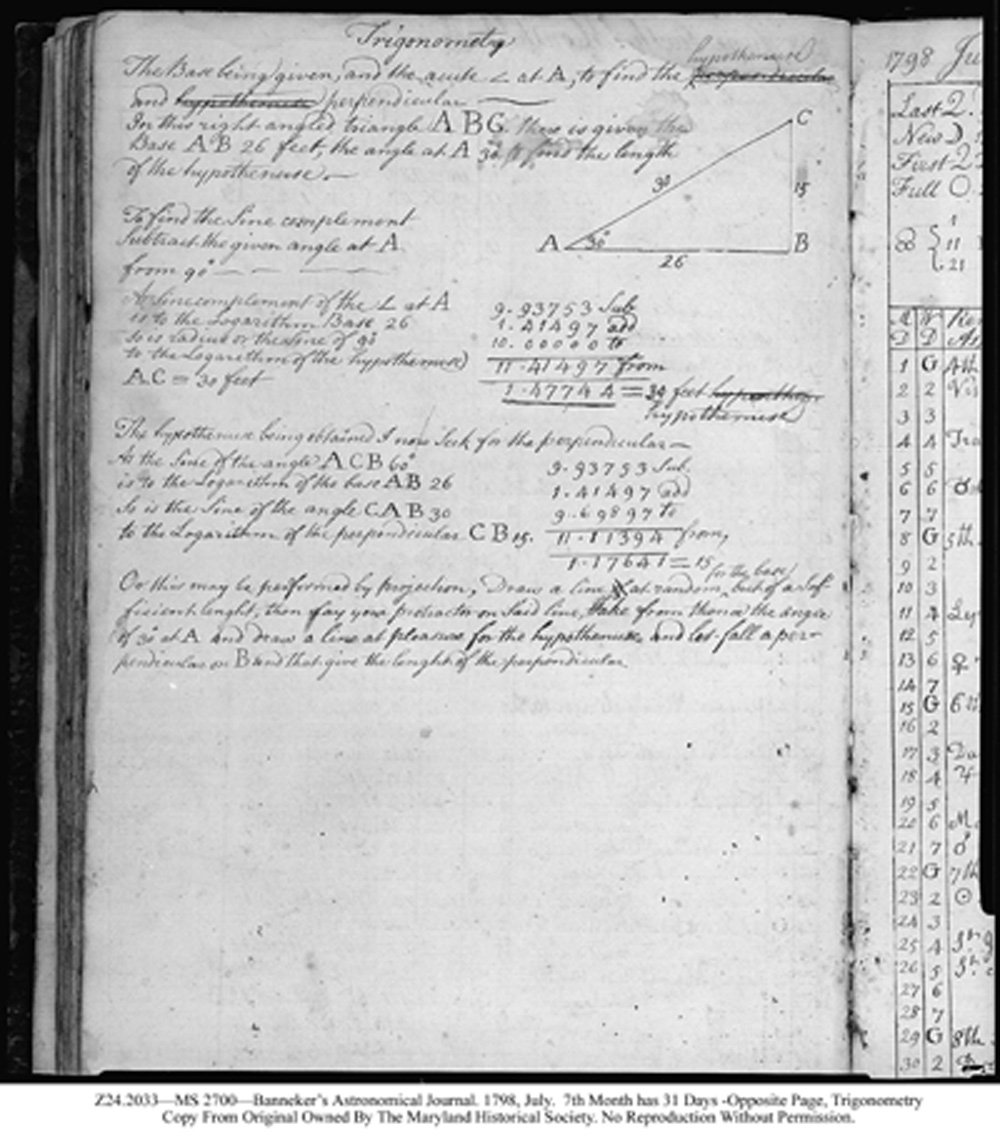 Trigonometry
hypothenuse
The Base being given, and the acute ∠ at A, to find the perpendicular
and hypothenuse perpendicular
In this right angled triangle ABC. there is given the
Base AB 26 feet, the angle at A 30° to find the length
of the hypothenuse.
C
30
15
A
30°
B
26
To find the Sine complement
Subtract the given angle at A
from 90°
As Sine complement of the ∠ at A 9.93753 Sub
is to the Logarithm Base 26 1.41497 add
So is radius or the Sine of 90 10.00000 to
to the Logarithm of the hypothenuse 11.41497 from
AC = 30 feet 1.47744 = 30 feet
hypothenuse
The hypothenuse being obtained I now Seek for the perpendicular
As the Sine of the angle ACB 60° 9.93753 Sub.
is to the Logarithm of the base AB 26 1.41497 add
So is the Sine of the angle CAB 30 9.69897 to
to the Logarithm of the perpendicular CB 15. 11.11394 from
1.17641 = 15
for the base
Or this may be performed by projection, Draw a line at random, but of a Suf-
ficient lenght, then lay your protractor on Said line, take from thence the angle
of 30 at A and draw a line at pleasure for the hypothenuse, and let fall a per-
pendicular on B and that give the lenght of the perpendicular
1798 Ju
Last Q.
New D
First Q
Full O
1
8 11
21
M W Re
D D As
1 G 4th
2 2
3 3
4 4
5 5
6 6
7 7
8 G 5th
9 2
10 3
11 4
12 5
13 6 ♀
14 7
15 G 6th
16 2
17 3
18 4 ♃
19 5
20 6
21 7
22 G 7th
23 2 ☉
24 3
25 4
26 5
27 6
28 7
29 G 8th
30 2
Z24.2033—MS 2700—Banneker's Astronomical Journal. 1798, July. 7th Month has 31 Days -Opposite Page, Trigonometry
Copy From Original Owned By The Maryland Historical Society. No Reproduction Without Permission.